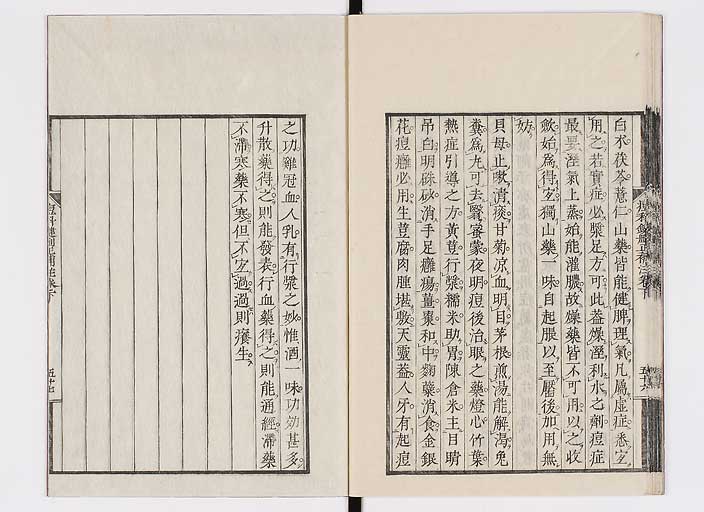 白朮茯苓薏仁山藥皆能健脾理氣凡屬虛症悉宜
用之若實症必漿足方可此益燥溼利水之劑痘症
最要溼氣上蒸始能灌膿故燥藥皆不可用以之收
斂始為得宜獨山藥一味自起脹以至靨後加用無
妨
貝母止嗽消痰甘菊涼血明目茅根煎湯能解渴兔
糞為丸可去翳蜜蒙夜明痘後治眼之藥燈心竹葉
熱症引導之方黃荳行漿糯米助胃陳倉米主目睛
吊白明硃砂消手足癰瘍薑棗和中麴蘖消食金銀
花痘癰必用生荳腐肉腫堪敷天靈益人牙有起痘
之功雞冠血人乳有行漿之妙惟酒一味功効甚多
升散藥得之則能發表行血藥得之則能通經滯藥
不滯寒藥不寒但不宜過過則癢生
五十六
五十七